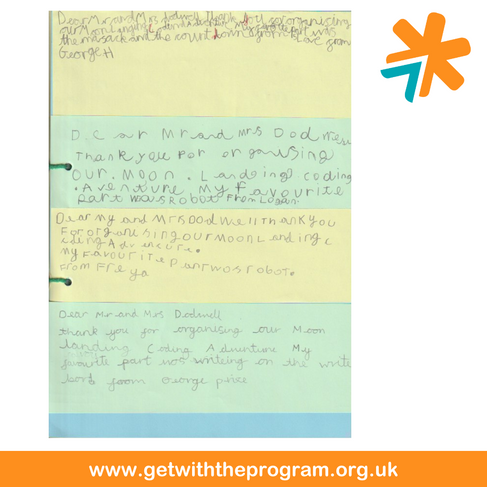 Dear Mr and Mrs Dodwell Thank you for organising
our Moon Landing
the masack and the countdown from Love from
George H
Dear Mr and Mrs Dodwell
Thank you for organising
our. Moon. Landing coding
. Aventure. My favourite
part was Robot From Logan.
Dear My and Mrs Dodwell Thank you
For organeising our Moon Landing c
coding Adventure.
My Favourite part was robot.
From Freya
Dear Mr and Mrs Dodwell
thank you for organising our Moon
landing Coding Adventure My
favourite part was writeing on the write
from George
www.getwiththeprogram.org.uk